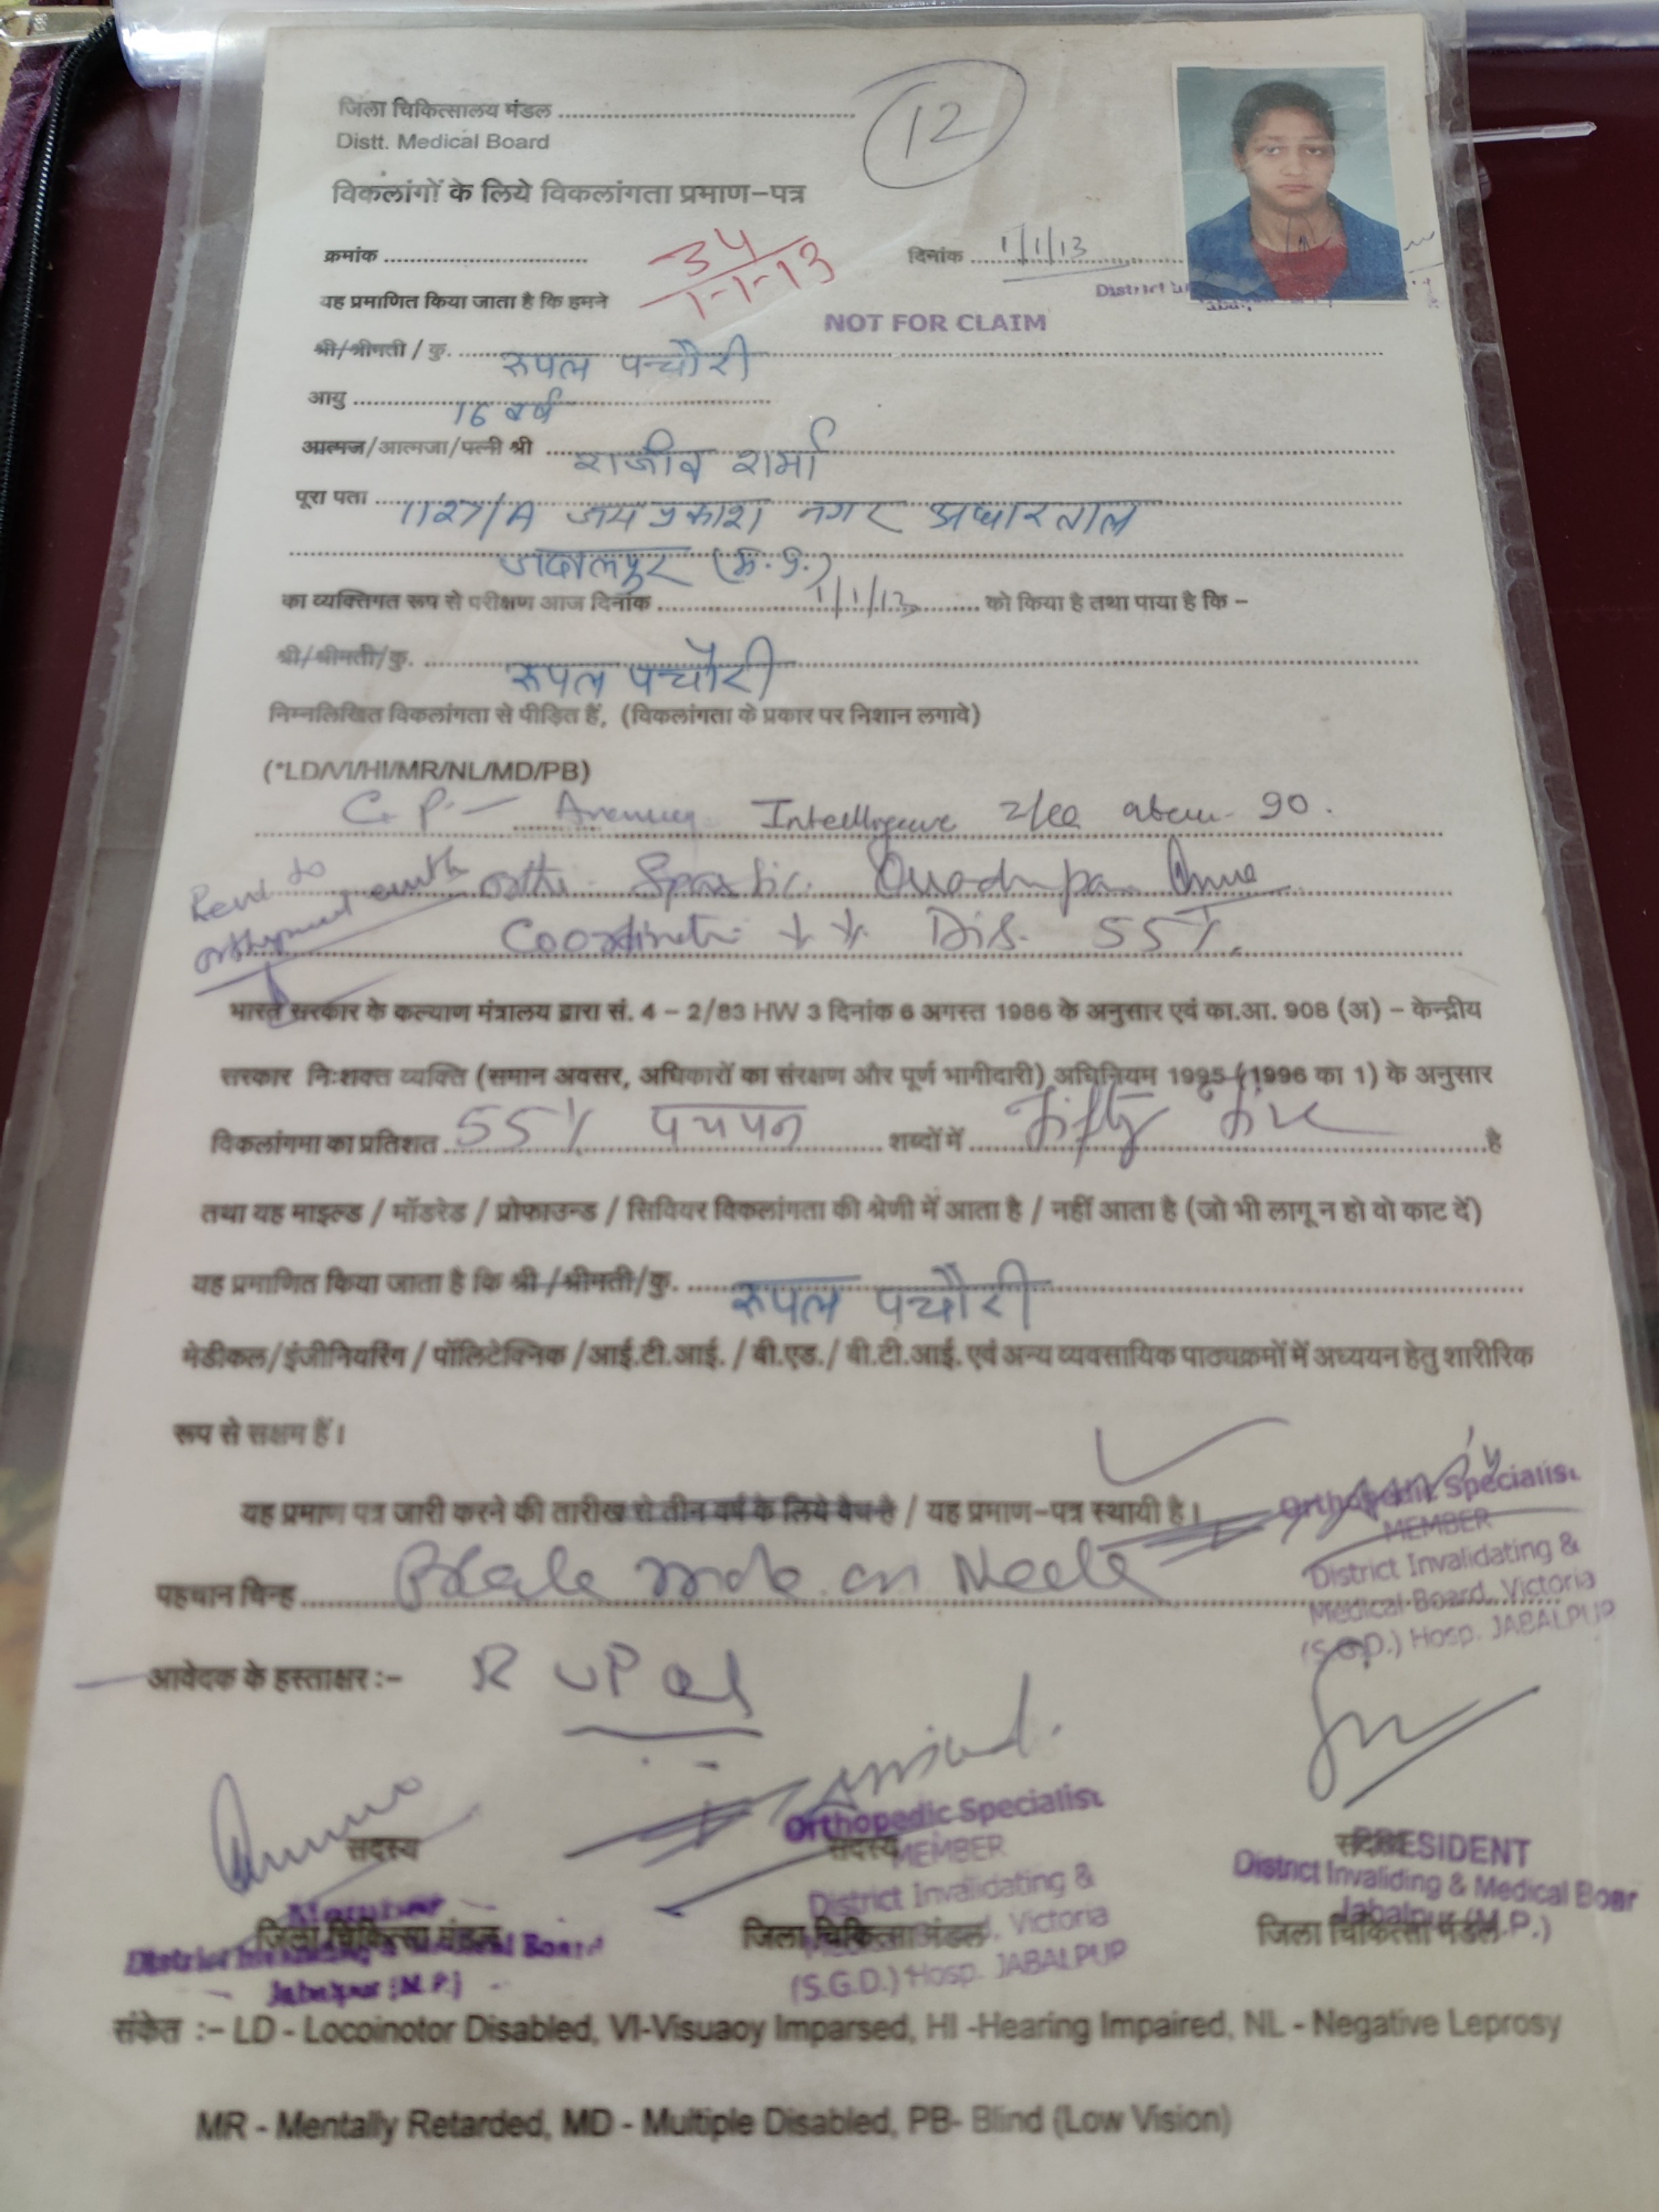 जिला चिकित्सालय मंडल
Distt. Medical Board
12
विकलांगों के लिये विकलांगता प्रमाण-पत्र
क्रमांक 34 / 1-1-13 दिनांक 1/1/13
यह प्रमाणित किया जाता है कि हमने
District
NOT FOR CLAIM
श्री/श्रीमती / कु. रूपल पचौरी
आयु 16 वर्ष
आत्मज/आत्मजा/पत्नी श्री राजीव शर्मा
पूरा पता 1127/A जय प्रकाश नगर अधारताल
जबलपुर (म.प्र.)
का व्यक्तिगत रूप से परीक्षण आज दिनांक 1/1/13 को किया है तथा पाया है कि -
श्री/श्रीमती/कु. रूपल पचौरी
निम्नलिखित विकलांगता से पीड़ित हैं, (विकलांगता के प्रकार पर निशान लगावे)
(*LD/VI/HI/MR/NL/MD/PB)
C.P. - Intelligence 90.
ortho. Spastic
Dis. 55%.
भारत सरकार के कल्याण मंत्रालय द्वारा सं. 4 - 2/83 HW 3 दिनांक 6 अगस्त 1986 के अनुसार एवं का.आ. 908 (अ) - केन्द्रीय
सरकार निःशक्त व्यक्ति (समान अवसर, अधिकारों का संरक्षण और पूर्ण भागीदारी) अधिनियम 1995 (1996 का 1) के अनुसार
विकलांगमा का प्रतिशत 55% पचपन शब्दों में fifty five है
तथा यह माइल्ड / मॉडरेड / प्रोफाउन्ड / सिवियर विकलांगता की श्रेणी में आता है / नहीं आता है (जो भी लागू न हो वो काट दें)
यह प्रमाणित किया जाता है कि श्री /श्रीमती/कु. रूपल पचौरी
मेडीकल/इंजीनियरिंग / पॉलिटेक्निक /आई.टी.आई. / बी.एड./ बी.टी.आई. एवं अन्य व्यवसायिक पाठ्यक्रमों में अध्ययन हेतु शारीरिक
रूप से सक्षम हैं।
यह प्रमाण पत्र जारी करने की तारीख से तीन वर्ष के लिये वैध है / यह प्रमाण-पत्र स्थायी है।
Orthopedic Specialist
MEMBER
District Invalidating &
Medical Board, Victoria
(S.G.D.) Hosp. JABALPUR
पहचान चिन्ह on
आवेदक के हस्ताक्षर :- RUPal
सदस्य सदस्य
Orthopedic Specialist
MEMBER
District Invalidating &
Victoria
(S.G.D.) Hosp. JABALPUR
PRESIDENT
District Invaliding & Medical Boar
Jabalpur (M.P.)
Member
Medical Board
Jabalpur (M.P.)
जिला चिकित्सा मंडल जिला चिकित्सा मंडल जिला चिकित्सा मंडल
संकेत :- LD - Locoinotor Disabled, VI-Visuaoy Imparsed, HI -Hearing Impaired, NL - Negative Leprosy
MR - Mentally Retarded, MD - Multiple Disabled, PB- Blind (Low Vision)